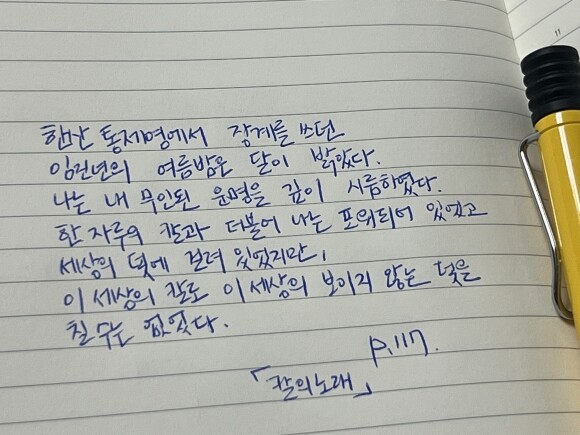 한산 통제영에서 장계를 쓰던
임진년의 여름밤은 달이 밝았다.
나는 내 무인된 운명을 깊이 시름하였다.
한 자루의 칼과 더불어 나는 포위되어 있었고
세상의 덫에 걸려 있었지만,
이 세상의 칼로 이 세상의 보이지 않는 덫을
칠 수는 없었다.
p.117.
「칼의노래」
11